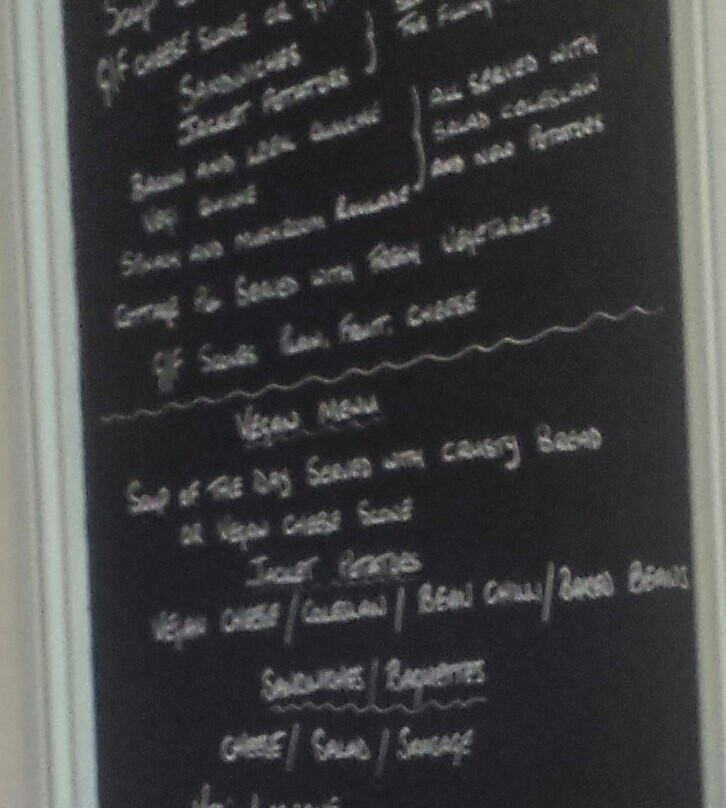 Soup
G/F CHEESE SCONE OR G/F
SANDWICHES
JACKET POTATOES
BACON AND LEEK QUICHE
VEG QUICHE
ALL SERVED WITH
SALAD COLESLAW
AND NEW POTATOES
AND MUSHROOM ROULADE
COTTAGE PIE SERVED WITH FRESH VEGETABLES
G/F SCONES PLAIN, FRUIT, CHEESE
VEGAN MENU
SOUP OF THE DAY SERVED WITH CRUSTY BREAD
OR VEGAN CHEESE SCONE
JACKET POTATOES
VEGAN CHEESE/COLESLAW/BEAN CHILLI/BAKED BEANS
SANDWICHES/BAGUETTES
CHEESE/SALAD/SAUSAGE